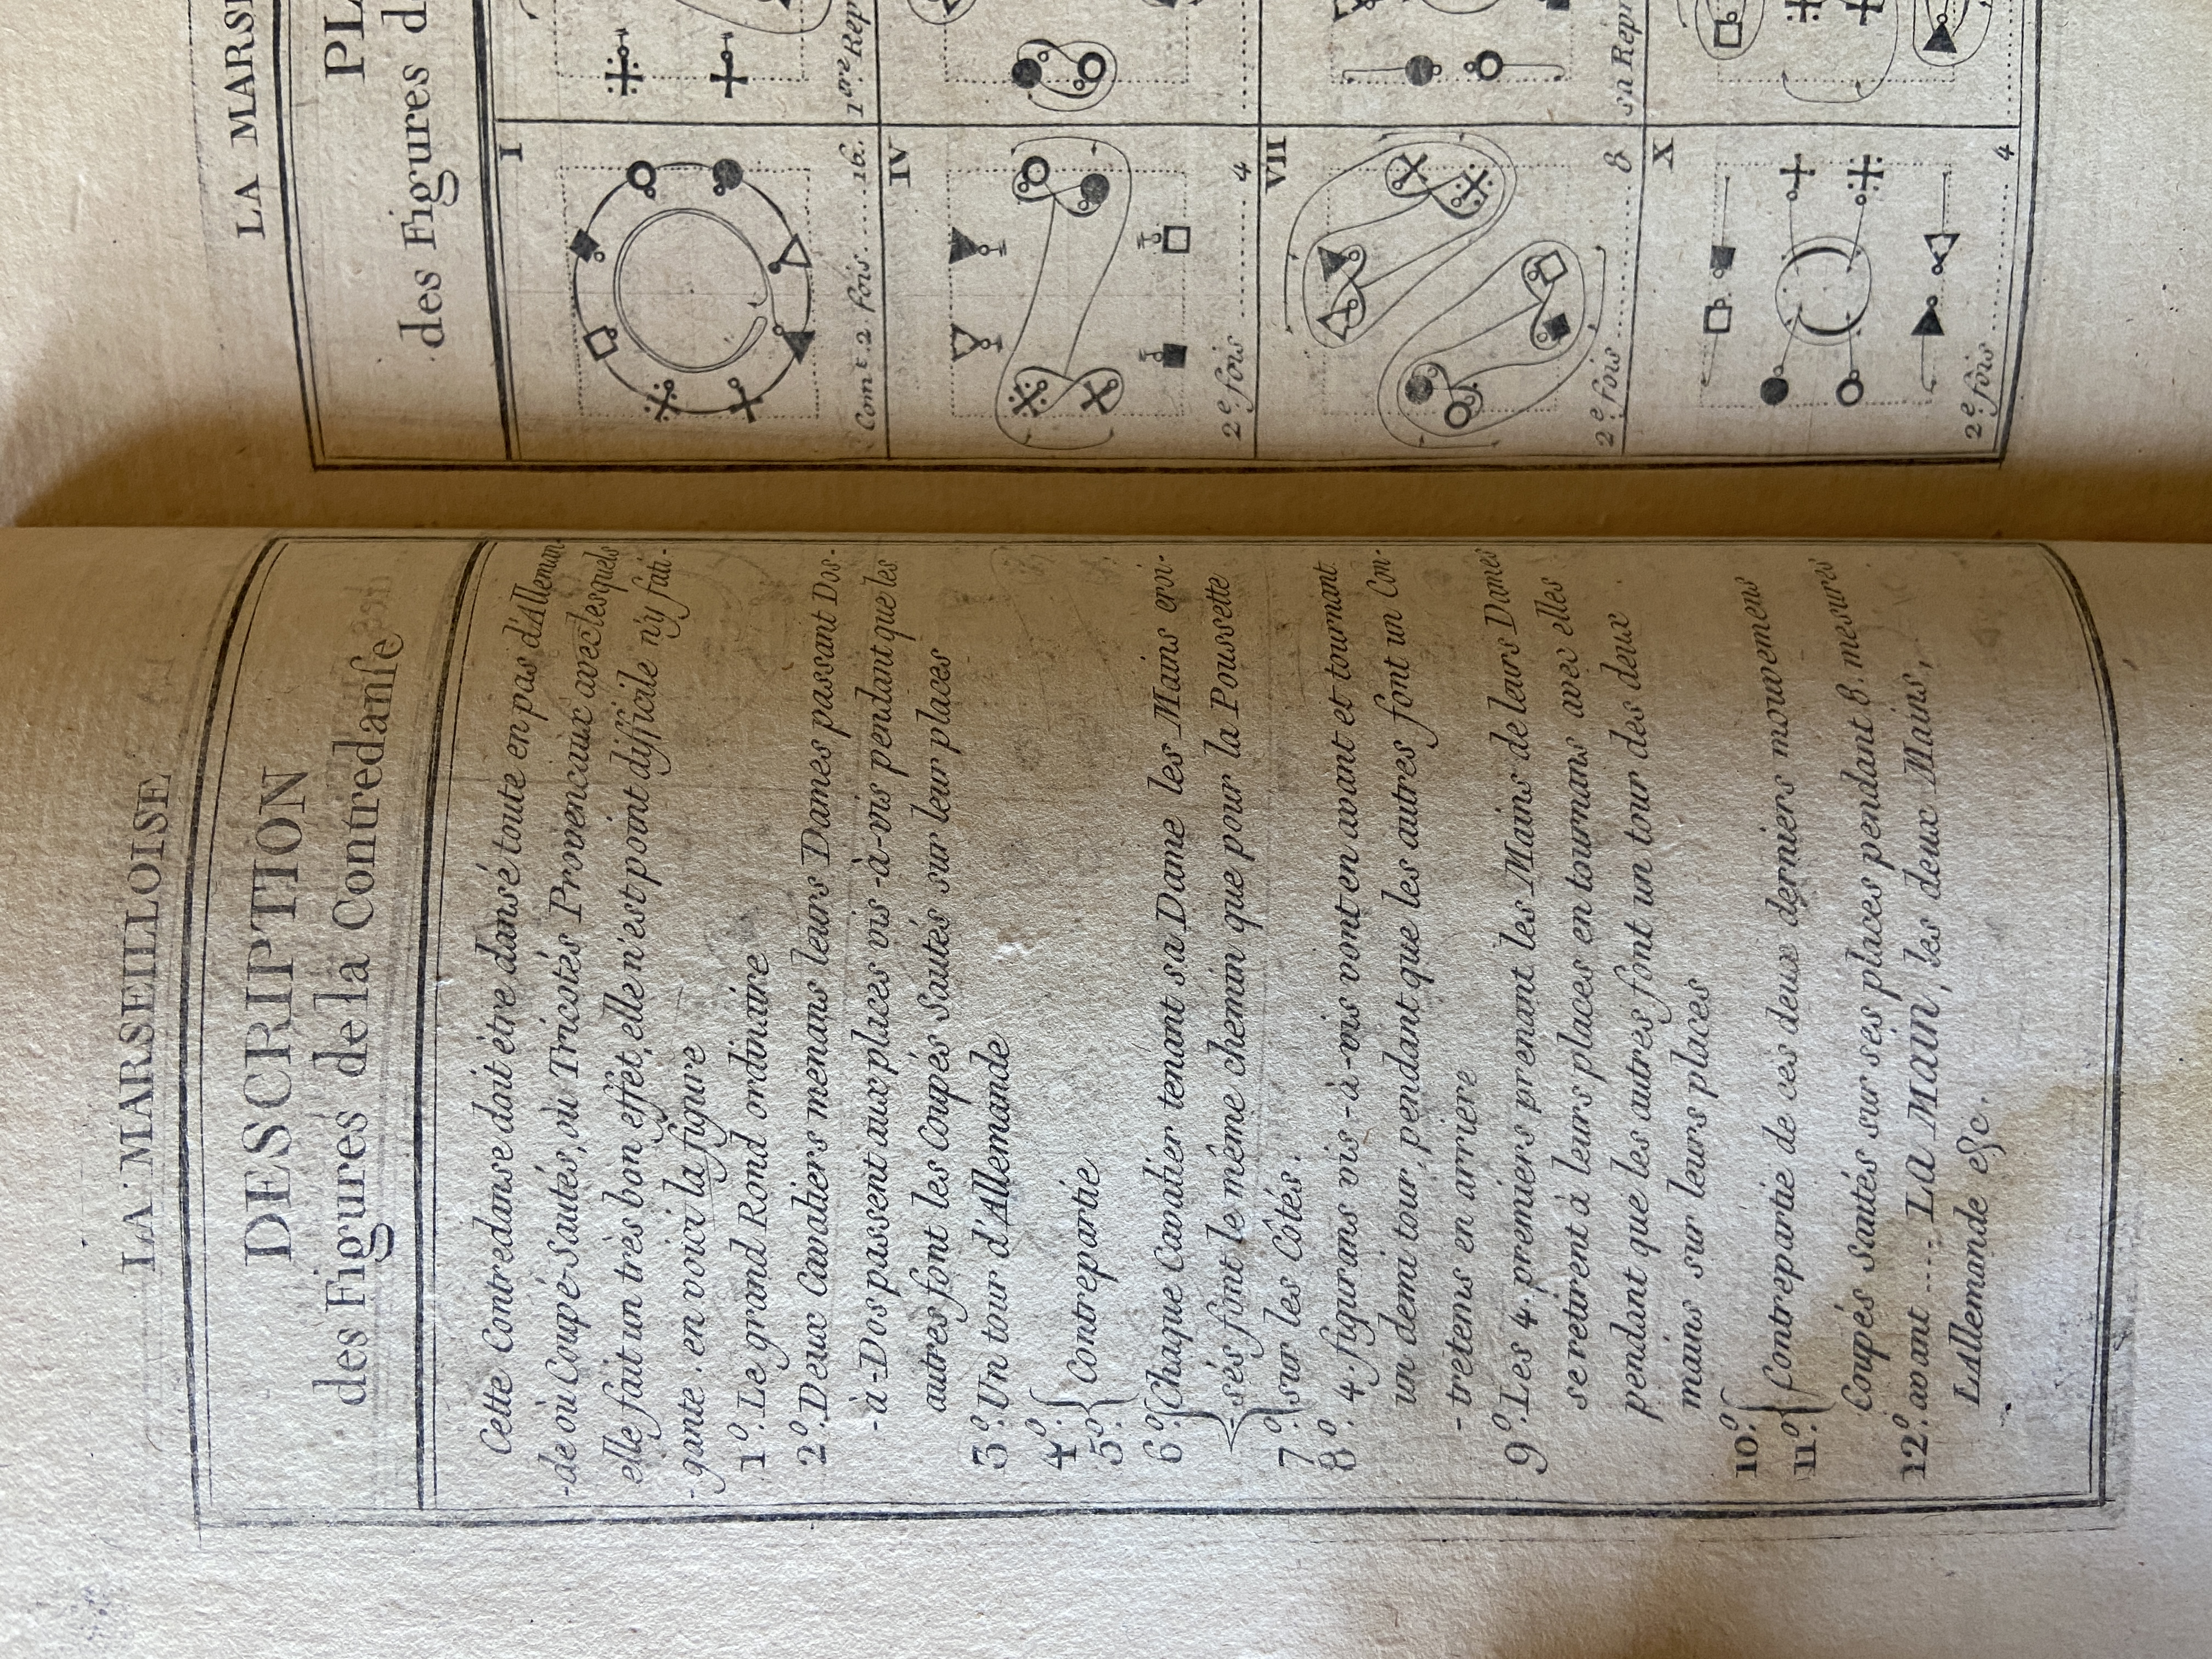 LA MARSEILLOISE
DESCRIPTION
des Figures de la Contredanſe
Cette Contredanse doit être dansé toute en pas d'Alleman
-de ou Coupé-Sautés, ou Tricotés Provencaux avec lesquels
elle fait un très bon effet, elle n'est point difficile n'y fati-
-gante. en voici la figure
1º. Le grand Rond ordinaire
2º. Deux Cavaliers menans leurs Dames passant Dos-
-à-Dos passent aux places vis-à-vis pendant que les
autres font les Coupés Sautés sur leur places
3º. Un tour d'Allemande
4º.
5º. Contrepartie
6º. Chaque Cavalier tenant sa Dame les Mains croi-
sés font le même chemin que pour la Poussette
7º. sur les Côtés.
8º. 4. figurans vis-à-vis vont en avant et tournant
un demi tour, pendant que les autres font un Con-
-tretems en arriere
9º. Les 4. premiers prenant les Mains de leurs Dames
se retirent à leurs places en tournans avec elles
pendant que les autres font un tour des deux
mains sur leurs places
10º.
11º. Contrepartie de ces deux derniers mouvemens
Coupés Sautés sur ses places pendant 8. mesures
12º. avant .... La Main, les deux Mains,
L'Allemande &c.
LA MARSE
PLA
des Figures d
I
Comt. 2 fois .... 16.
1ere Rep
IV
2e. fois ........ 4
VII
2e. fois ........ 8
sa Repr
X
2e. fois ........ 4